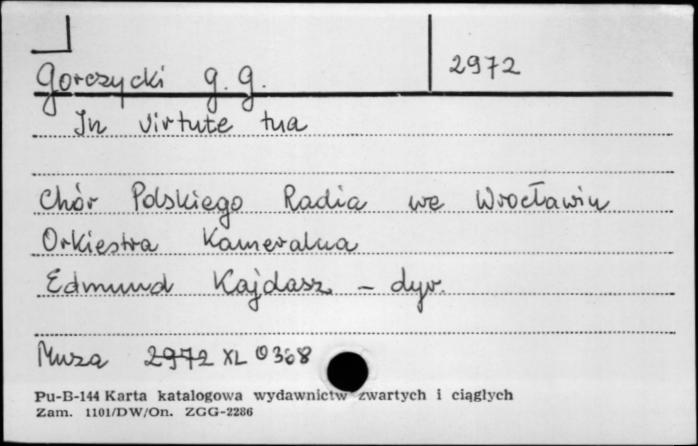 Gorczycki G. G. 2972
In virtute tua
Chór Polskiego Radia we Wrocławiu
Orkiestra Kameralna
Edmund Kajdasz - dyr.
Muza 2972 XL 0368
Pu-B-144 Karta katalogowa wydawnictw zwartych i ciągłych
Zam. 1101/DW/On. ZGG-2286